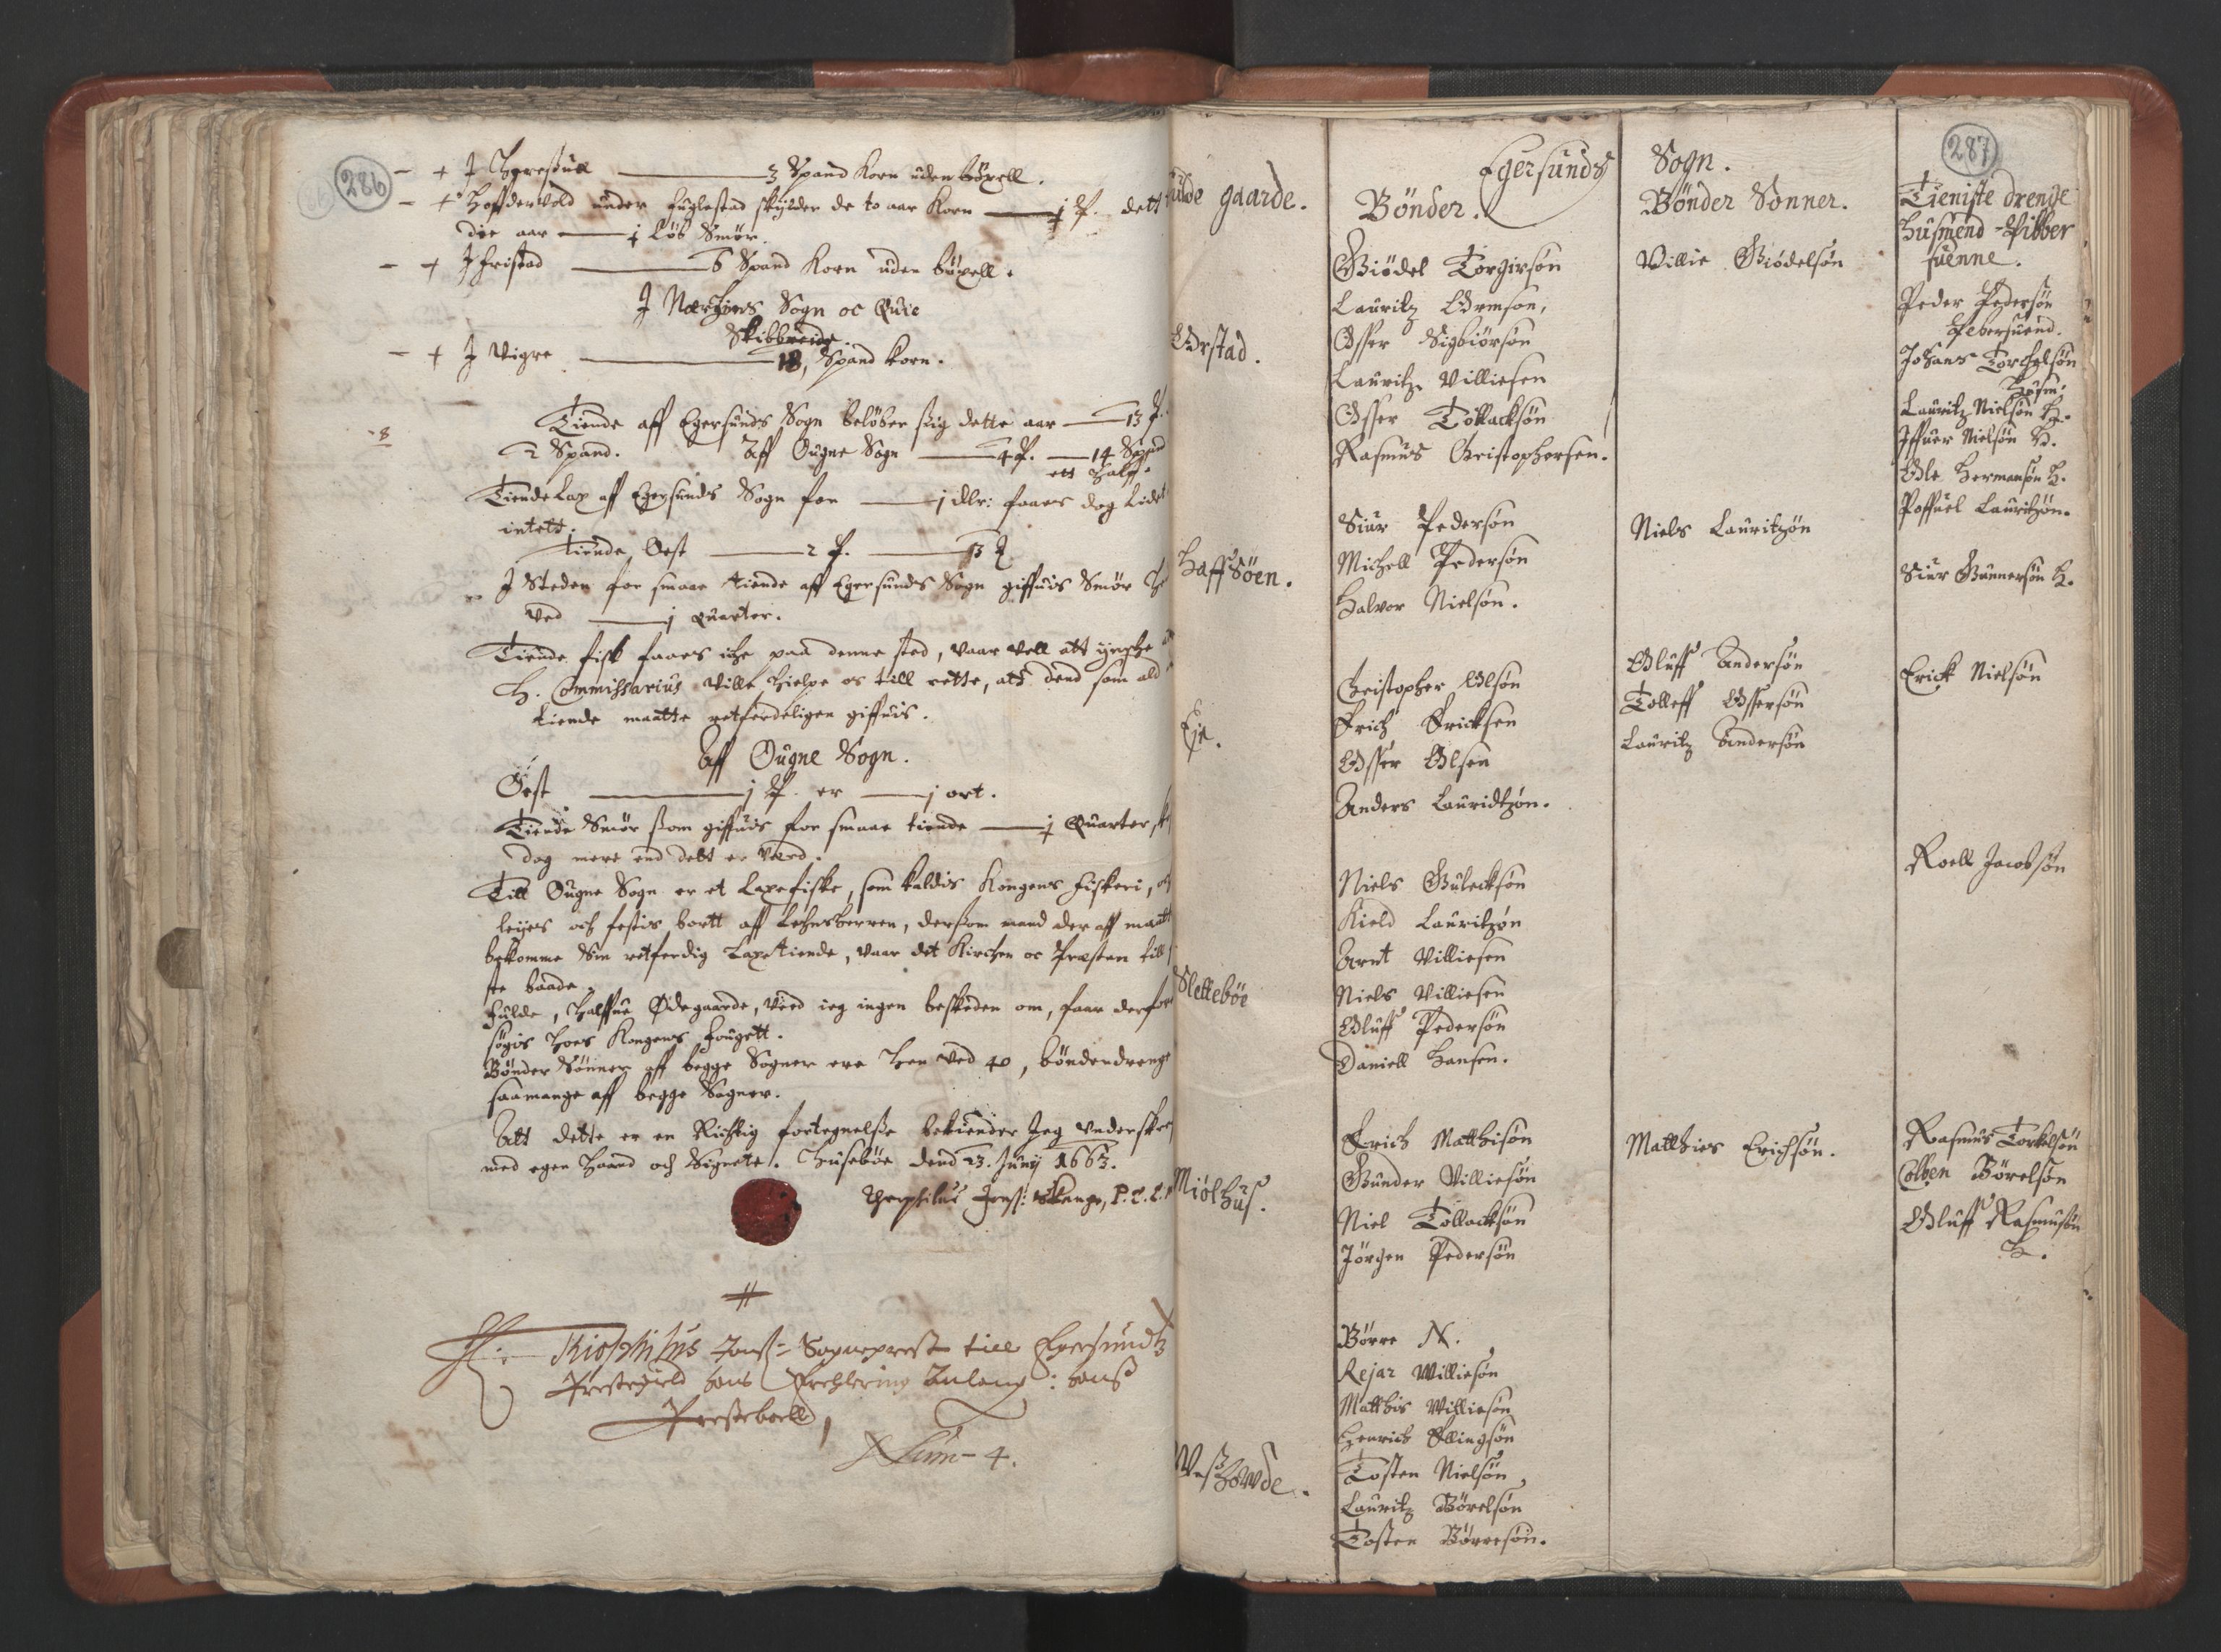 286
- + J Theressuell — 3 Spand Korn uden böxell.
- + Hoffdervold under Fuglestad skylder de to aar Korn — j ℔. dett
die aar — j Löb Smör.
- + J Fristad — 6 Spand Korn uden böxell.
J Nærboes Sogn oc Quie
Skibbreide.
- + J Vigre — 18, Spand korn.
Tiende aff Egersunds Sogn belöber sig dette aar — 13 ℔.
2 Spand. Aff Ougne Sogn — 4 ℔. — 14 Spand
ett halff.
Tiende Lax aff Egersunds Sogn for — j dlr: faaes dog Lidet
intett.
Tiende Ost — 2 ℔. — 13
J Steden for smaae tiende aff Egersunds Sogn giffuis Smör
ved — j quarter.
Tiende fisk faaes iche paa denne sted, vaar vell att ynsche
H. Commissarius ville hielpe os till rette, att dend som ald
tiende maatte retferdeligen giffuis.
Aff Ougne Sogn.
Ost — j ℔. er — j ort.
Tiende Smör som giffuis for smaae tiende — j Quarter
dog mere end dett er værd.
Till Ougne Sogn er et Laxefiske, som kaldis Kongens Fiskeri, och
leyes och festis bortt aff Lehnsherren, dersom mand der aff maatt
bekomme Sin retferdig Laxetiende, vaar det Kirchen oc Præsten till
ste baade.
Fulde, halffue Ødegaarde, veed ieg ingen beskeden om, faar derfor
søgis hoes Kongens Fougett.
Bönder Sönner aff begge Sogner ere hen ved 40, böndendrenge
saamange aff begge Sogner.
Att dette er en Richtig fortegnelsse bekiender Jeg underskref
med egen haand och Signete. Husebøe dend 23. Junij 1663.
Theophilus Jenss: Schange, P. E. E.
H:r Thiophilus Jonss: Sogneprest till Egersundtz
Prestegield hans Erchlering Anlang: hanß
Prestebolle,
Num- 4.
287
Egersunds Sogn.
Fulde gaarde.
Bönder.
Bönder Sönner.
Tieniste drenge
Husmend - Pibber
suenne.
Giödel Torgirsön
Villie Giödelsön
Lauritz Ormsön,
Peder Pedersön
Pebersuend.
Ørstad.
Osser Sigbiörsön
Johans Torchelsön
Husm:
Lauritz Villiesen
Lauritz Nielsön H.
Osser Tollacksön
Iffuer Nielsön H.
Rasmus Christophersen.
Ole Hermansön H.
Poffuel Lauritzön.
Siur Pedersön
Niels Lauritzön
Haffsöen.
Michell Pedersön
Siur Gunnersön H.
Halvor Nielsön.
Christopher Olsön
Oluff Andersön
Erick Nielsön
Eje.
Erich Ericksen
Tolleff Ossersön
Osser Olsen
Lauritz Andersön
Anders Lauridtzön.
Niels Gulecksön
Roell Jacobsön
Kield Lauritzön
Arnt Villiesen
Slettebøe
Niels Villiesen
Oluff Pedersön
Daniell Hansen.
Erich Matthisön
Matthies Erichsön.
Rasmus Torkelsön
Miølhus.
Gunder Villiesön
Colben Börelsön
Niel Tollacksön
Oluff Rasmusön
H.
Jörgen Pedersön
Börre N.
Rejar Williesön
Matthis Williesön
Henrich Ellingsön
Veshovde.
Tosten Nielsön
Lauritz Börelsön
Tosten Börresön.